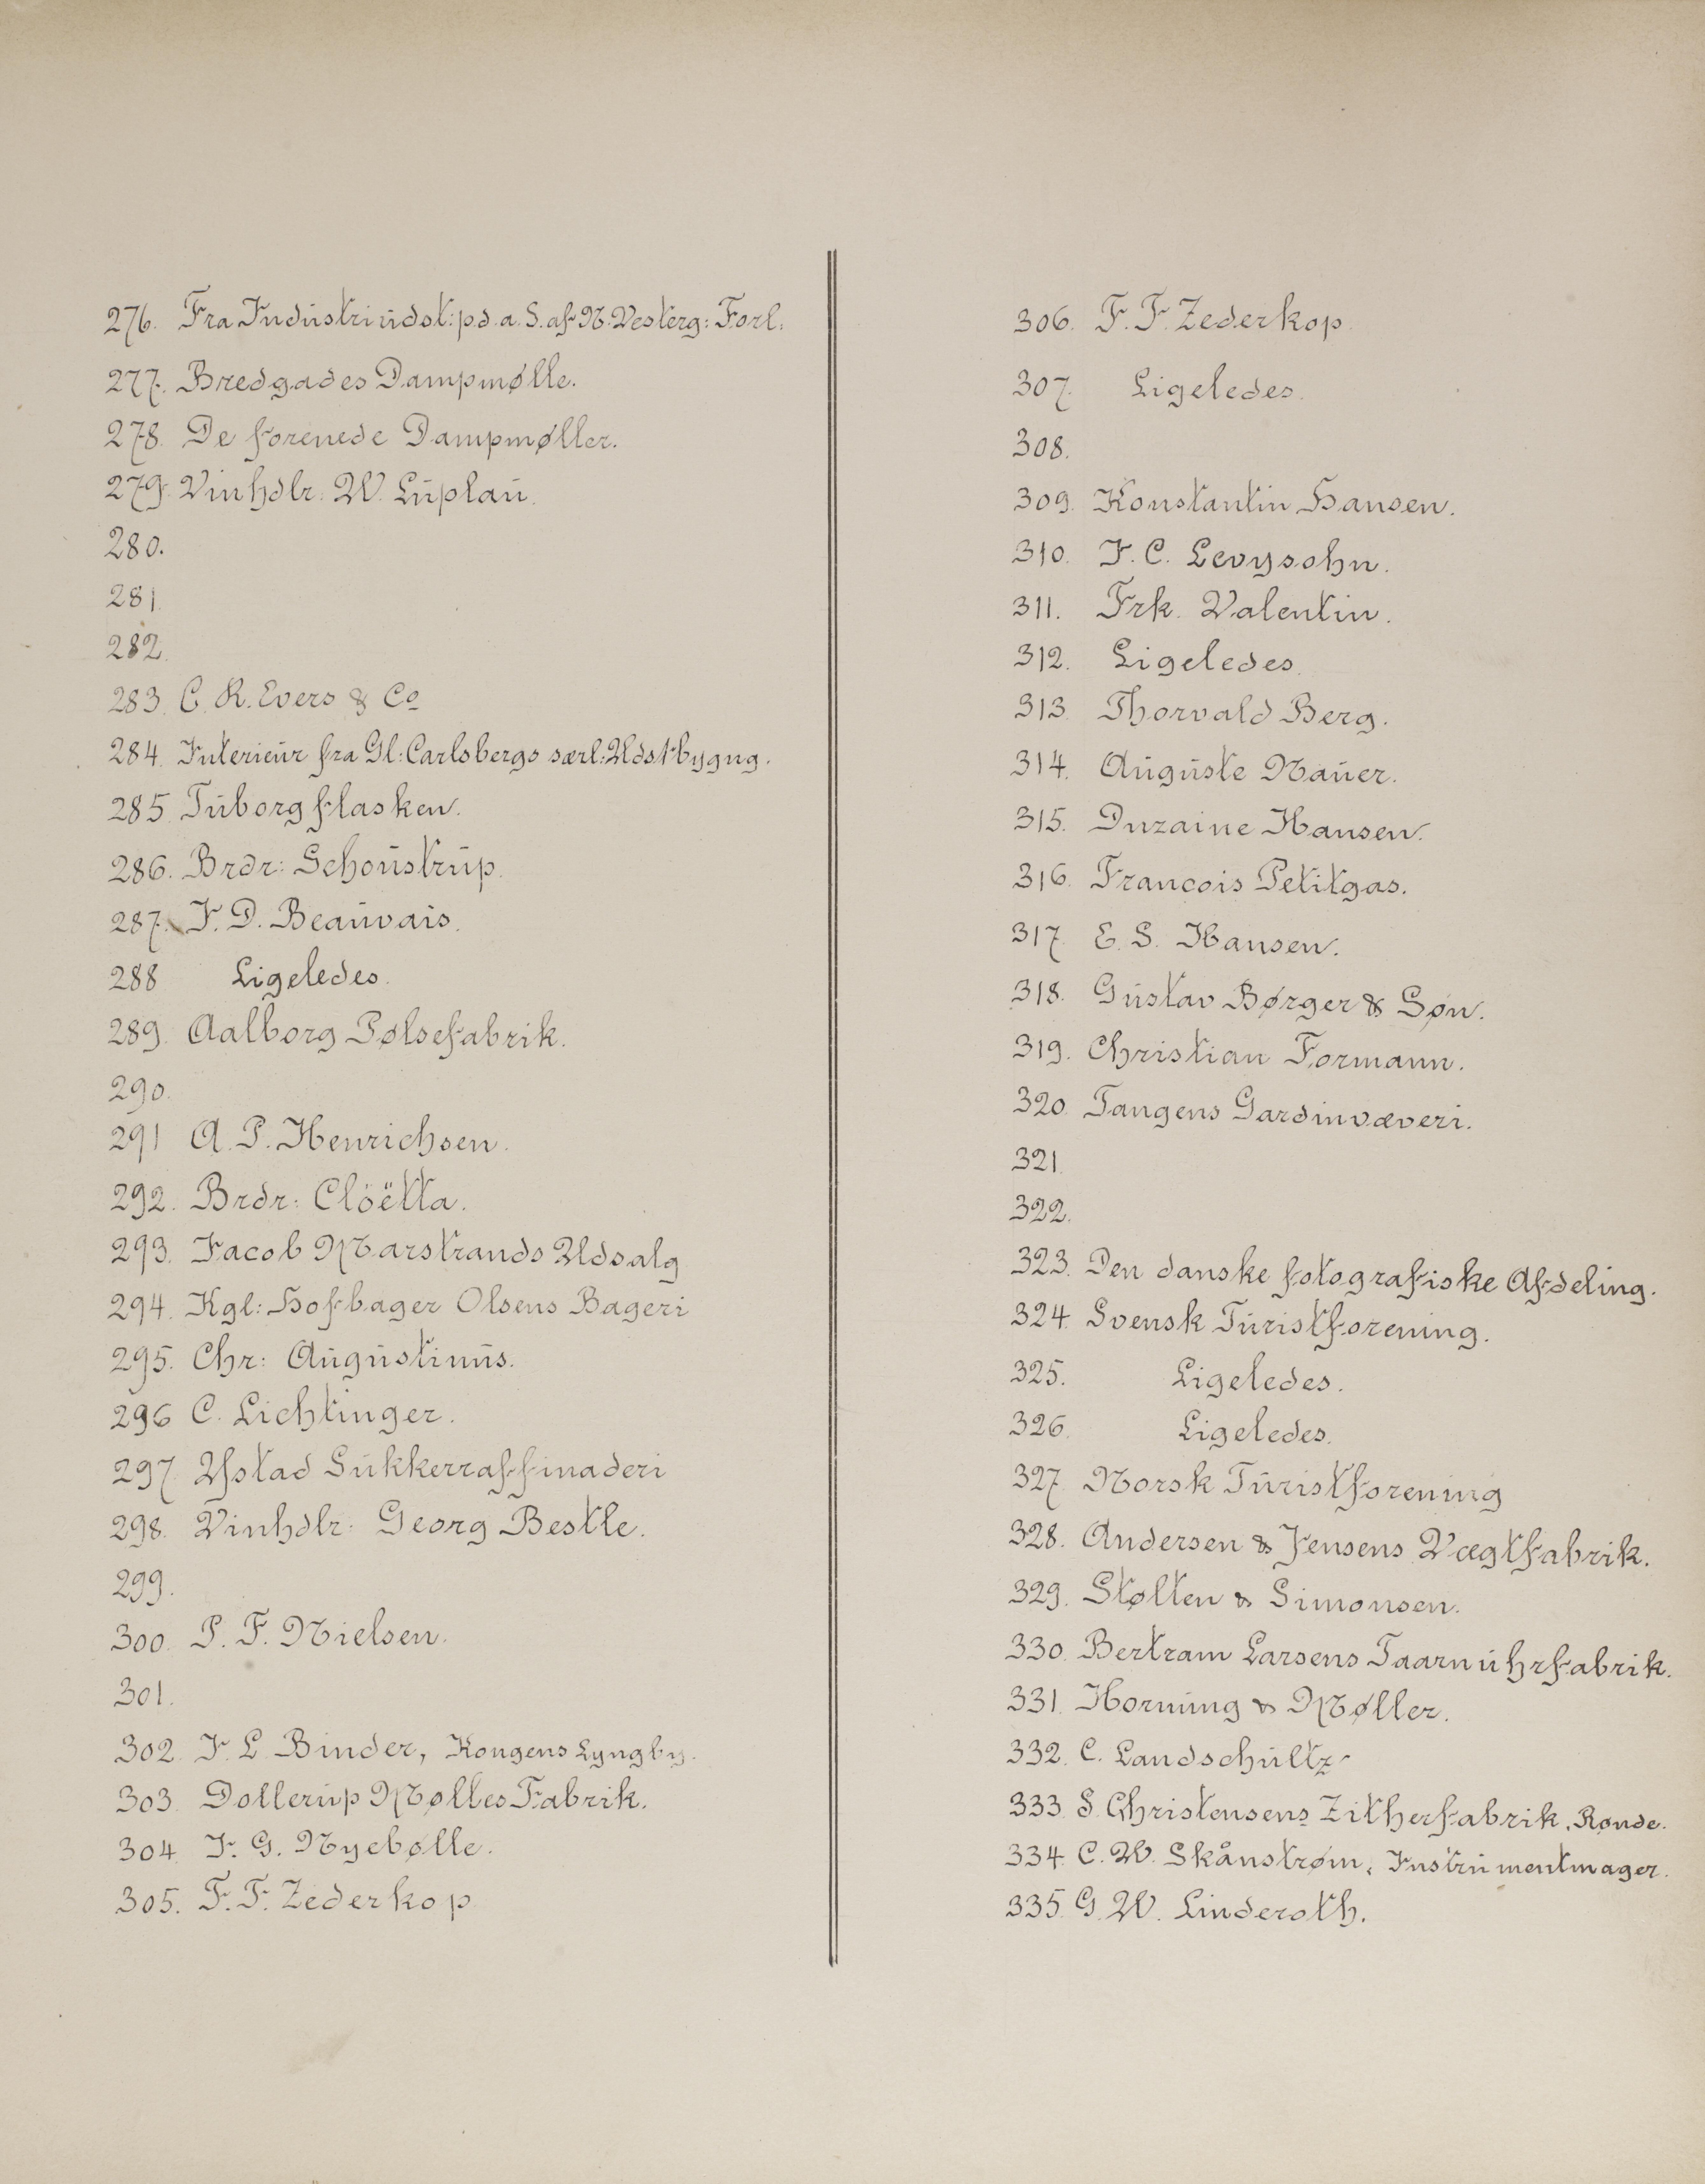 276. Fra Industriudst: p. d. a. S. af N. Vesterg: Forl.
277. Bredgades Dampmølle.
278. De forenede Dampmøller.
279. Vinhdlr: W. Luplau.
280.
281.
282.
283. C. R. Evers & Co
284. Interieur fra Gl: Carlsbergs særl: Udstbygng.
285. Tuborgflasken.
286. Brdr: Schoustrup.
287. J. D. Beauvais.
288 Ligeledes.
289. Aalborg Pølsefabrik.
290.
291 A. P. Henrichsen.
292. Brdr: Clöëtta.
293. Jacob Marstrands Udsalg
294. Kgl: Hofbager Olsens Bageri
295. Chr: Augustinus.
296 C. Lichtinger.
297. Ystad Sukkerraffinaderi
298. Vinhdlr: Georg Bestle.
299.
300. P. F. Nielsen.
301.
302. J. L. Binder, Kongens Lyngby.
303. Dollerup Mølles Fabrik.
304. J. G. Nyebølle.
305. F. F. Zederkop
306. F. F. Zederkop
307. Ligeledes.
308.
309. Konstantin Hansen.
310. J. C. Levysohn.
311. Frk. Valentin.
312. Ligeledes.
313. Thorvald Berg.
314. Auguste Nauer.
315. Duzaine Hansen.
316. Francois Petitgas.
317. E. S. Hansen.
318. Gustav Børger & Søn.
319. Christian Formann.
320. Tangens Gardinvæveri.
321.
322.
323. Den danske fotografiske Afdeling.
324. Svensk Turistforening.
325. Ligeledes.
326. Ligeledes.
327. Norsk Turistforening
328. Andersen & Jensens Vægtfabrik.
329. Stølten & Simonsen.
330. Bertram Larsens Taarnuhrfabrik.
331. Hornung & Møller.
332. C. Landschultz
333. S. Christensens Zitherfabrik, Rønde.
334. C. W. Skånstrøm, Instrumentmager.
335. G. W. Linderoth.